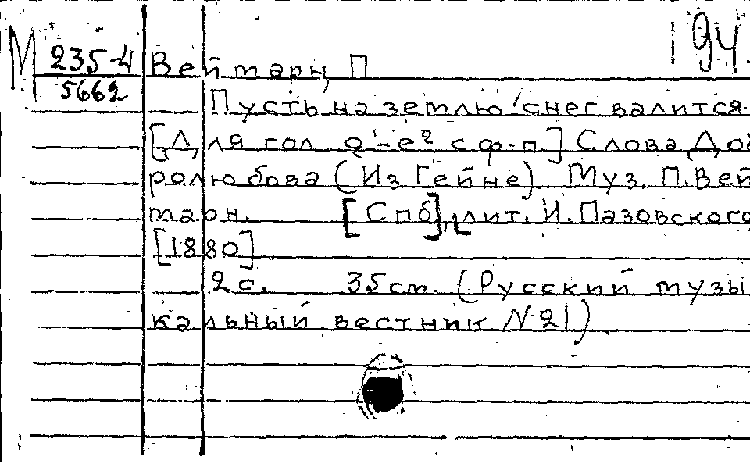 М 235-4 Вейтарн, П 194
5662 Пусть на землю снег валится
[Для гол. d¹-e² с ф-п.] Слова Доб
ролюбова (Из Гейне). Муз. П. Вей
тарн. [Спб], лит. И. Пазовского
[1880]
2 с. 35 см. (Русский музы
кальный вестник N21)